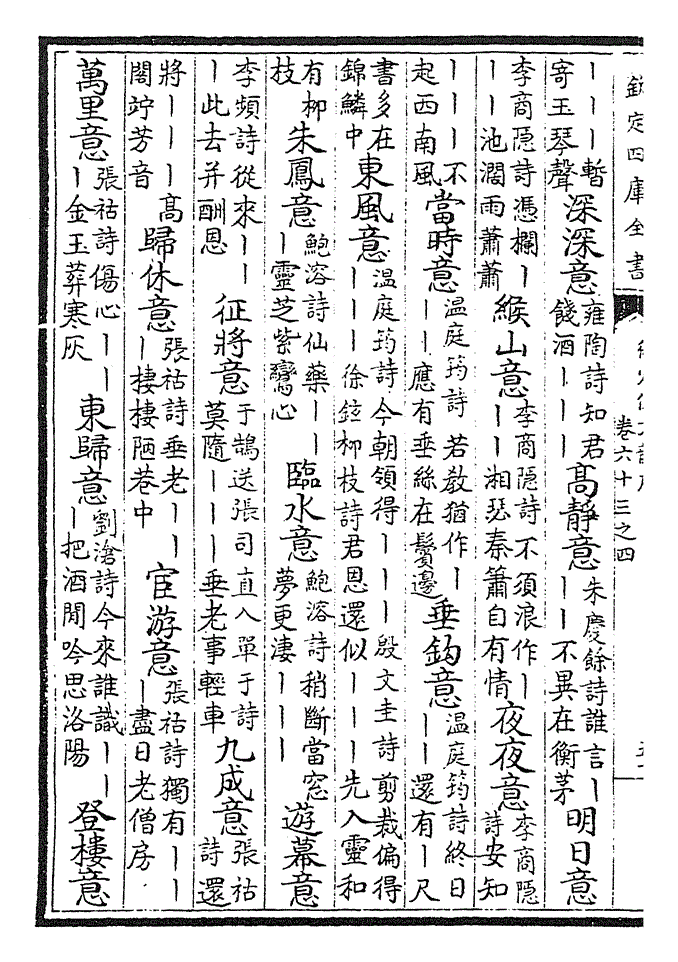 欽定四庫全書
卷六十三之四
丨丨丨暫寄玉琴聲 深深意 雍陶詩知君餞酒丨丨丨 高靜意 朱慶餘詩誰言丨丨丨不異在衡茅 明日意
李商隱詩憑欄丨丨丨池濶雨蕭蕭 緱山意 李商隱詩不須浪作丨丨丨湘瑟秦簫自有情 夜夜意 李商隱詩安知
丨丨丨不起西南風 當時意 溫庭筠詩若教猶作丨丨丨應有垂絲在鬢邊 垂鈎意 溫庭筠詩終日丨丨還有丨尺
書多在錦鱗中 東風意 溫庭筠詩今朝領得丨丨丨殷文圭詩剪裁偏得丨丨丨徐鉉栁枝詩君恩還似丨丨丨先入靈和
有栁枝 朱鳳意 鮑溶詩仙藥丨丨丨靈芝紫鸞心 臨水意 鮑溶詩稍斷當窓夢更淒丨丨丨 遊幕意
李頻詩從來丨丨丨此去并酬恩 征將意 于鵠送張司直入單于詩莫隨丨丨丨垂老事輕車 九成意 張祜詩還
將丨丨丨高閣竚芳音 歸休意 張祜詩垂老丨丨丨棲棲陋巷中 宦游意 張祜詩獨有丨丨丨盡日老僧房
萬里意 張祜詩傷心丨丨丨金玉葬寒灰 東歸意 劉滄詩今來誰識丨丨丨把酒閒吟思洛陽 登樓意